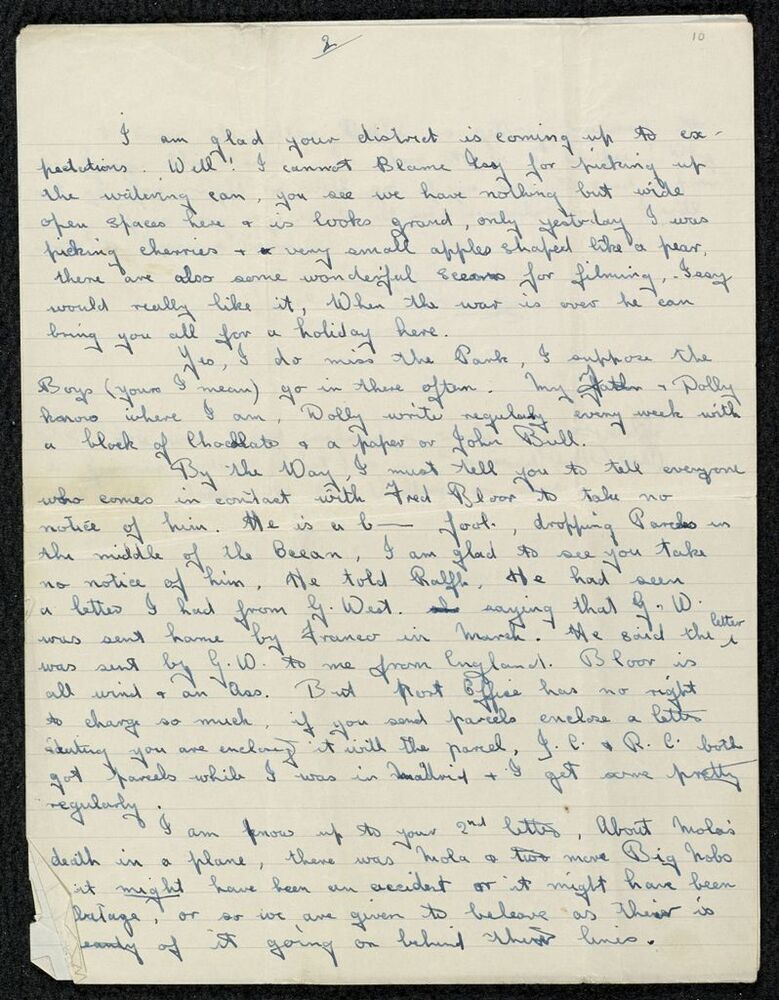 2
10
I am glad your district is coming up to ex-
pectations. Well! I cannot Blame Issy for picking up
the watering can, you see we have nothing but wide
open spaces here & is looks grand, only yesterday I was
picking cherries + very small apples shaped like a pear,
there are also some wonderful for filming, Issy
would really like it, When the war is over he can
bring you all for a holiday here.
Yes, I do miss the Park, I suppose the
Boys (yours I mean) go in there often. My Father & Dolly
know where I am, Dolly write regularly every week with
a block of & a paper or John Bull.
By the Way, I must tell you to tell everyone
who comes in contact with Fred Bloor to take no
notice of him. He is a b— fool, dropping Parcels in
the middle of the , I am glad to see you take
no notice of him, He told Ralph, He had seen
a letter I had from G. West. saying that G. W.
was sent home by Franco in March. He said the letter
was sent by G. W. to me from England. Bloor is
all wind & an Ass. But Post Office has no right
to charge so much, if you send parcels enclose a letter
you are it with the parcel, J. C. & R. C. both
got parcels while I was in Madrid & I get some pretty
regularly.
I am now up to your 2nd letter, About Mola's
death in a plane, there was Mola & two more Big Nobs
it might have been an accident or it might have been
, or so we are given to beleave as their is
of it going on behind lines.